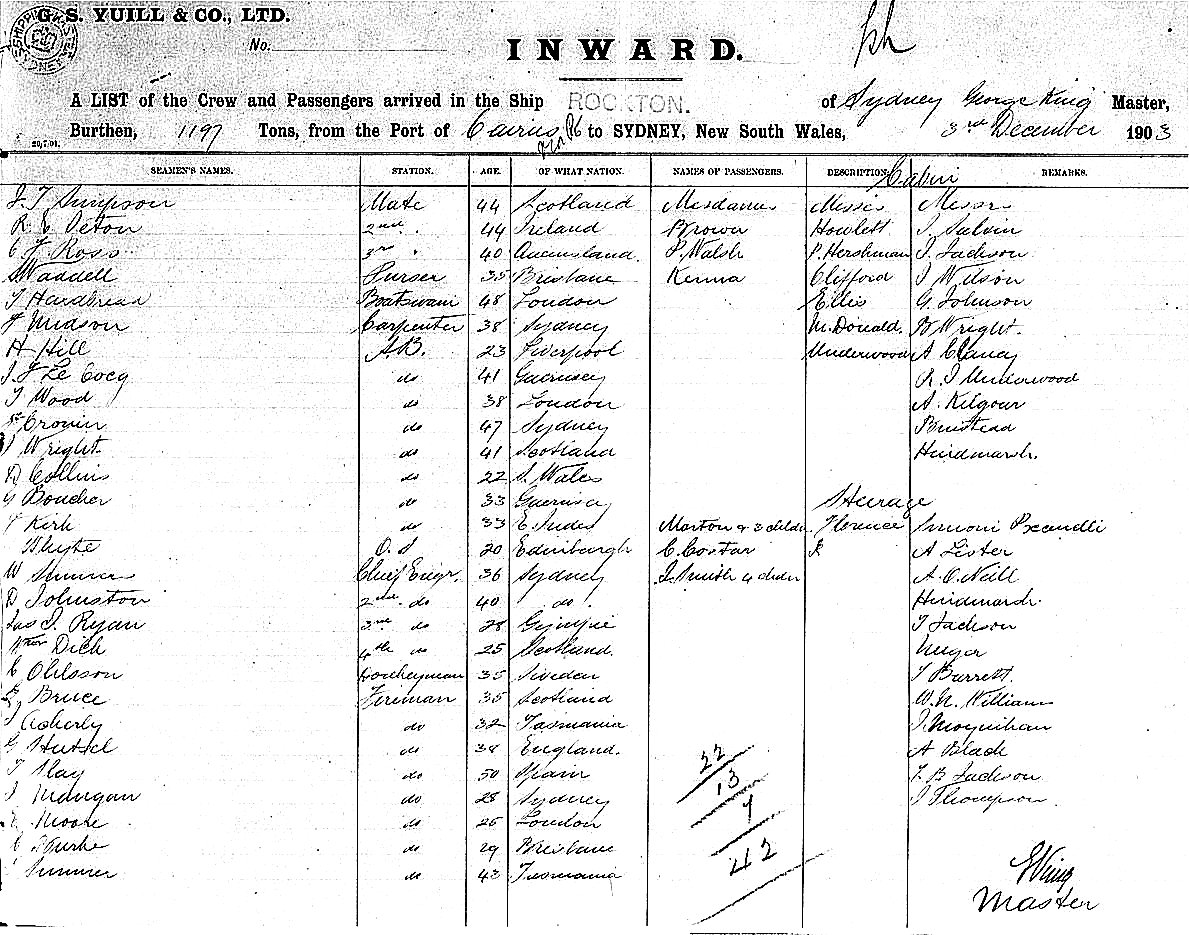 G. S. YUILL & CO., LTD.
No.
INWARD.
A LIST of the Crew and Passengers arrived in the Ship ROCKTON. of Sydney George King Master,
Burthen, 1197 Tons, from the Port of Cairns to SYDNEY, New South Wales, 3rd December 1903
20,7,01.
SEAMEN'S NAMES. STATION. AGE. OF WHAT NATION. NAMES OF PASSENGERS. DESCRIPTION REMARKS.
Cabin
J. T. Simpson Mate 44 Scotland Mesdames Misses Messrs
R. E. Peton 2nd " 44 Ireland Brown Howlett J. Salvin
C J Ross 3rd " 40 Queensland. P. Walsh P. Hershman J. Jackson
Waddell Purser 35 Brisbane Kenna Clifford J Wilson
T Hardbread Boatswain 48 London Ellis G. Johnson
J Midson Carpenter 38 Sydney McDonald. B Wright.
H Hill A.B. 23 Liverpool Underwood A Clancy
J. F Le Cocq do 41 Guernsey R. J Underwood
T Wood do 38 London A. Kilgour
Cronin do 47 Sydney Binstead
J Wright do 41 Scotland Hindmarsh.
D Collins do 22 S. Wales
G Boucher do 33 Guernsey
Steerage
Kirk do 33 E. Indies Morton & 3 childn Florence Simoni
Whyte O.S 20 Edinburgh C. Costar A Lister
W Chief Engr. 36 Sydney J. Smith 4 chdn A. O. Neill
D Johnston 2nd do 40 do. Hindmarsh.
Jas J. Ryan 3rd do 28 Gympie T Jackson
Wm Dick 4th do 25 Scotland. Unger
C Ohlsson Donkeyman 35 Sweden T Barrett.
Bruce Fireman 35 Scotland W. N. Williams
J Acherly do 32 Tasmania J. Moynihan
G Hutsel do 38 England. A Black
T Slay do 50 Spain F. B Jackson
J Mangan do 28 Sydney J Thompson.
Moore do 25 London
Burke do 29 Brisbane
Sumner do 43 Tasmania
22
13
7
42
G King
Master